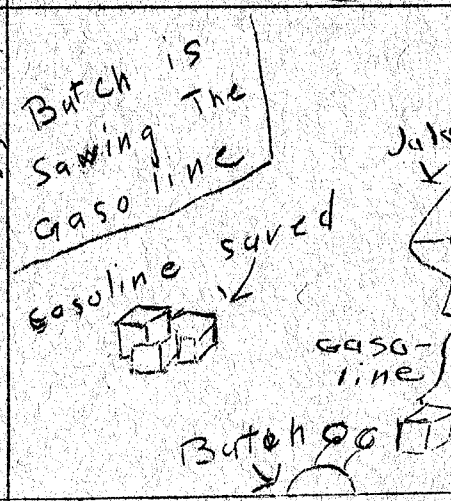 Butch is
Sawing The
Gasoline
Gasoline saved
Jul
Gaso-
line
Butch